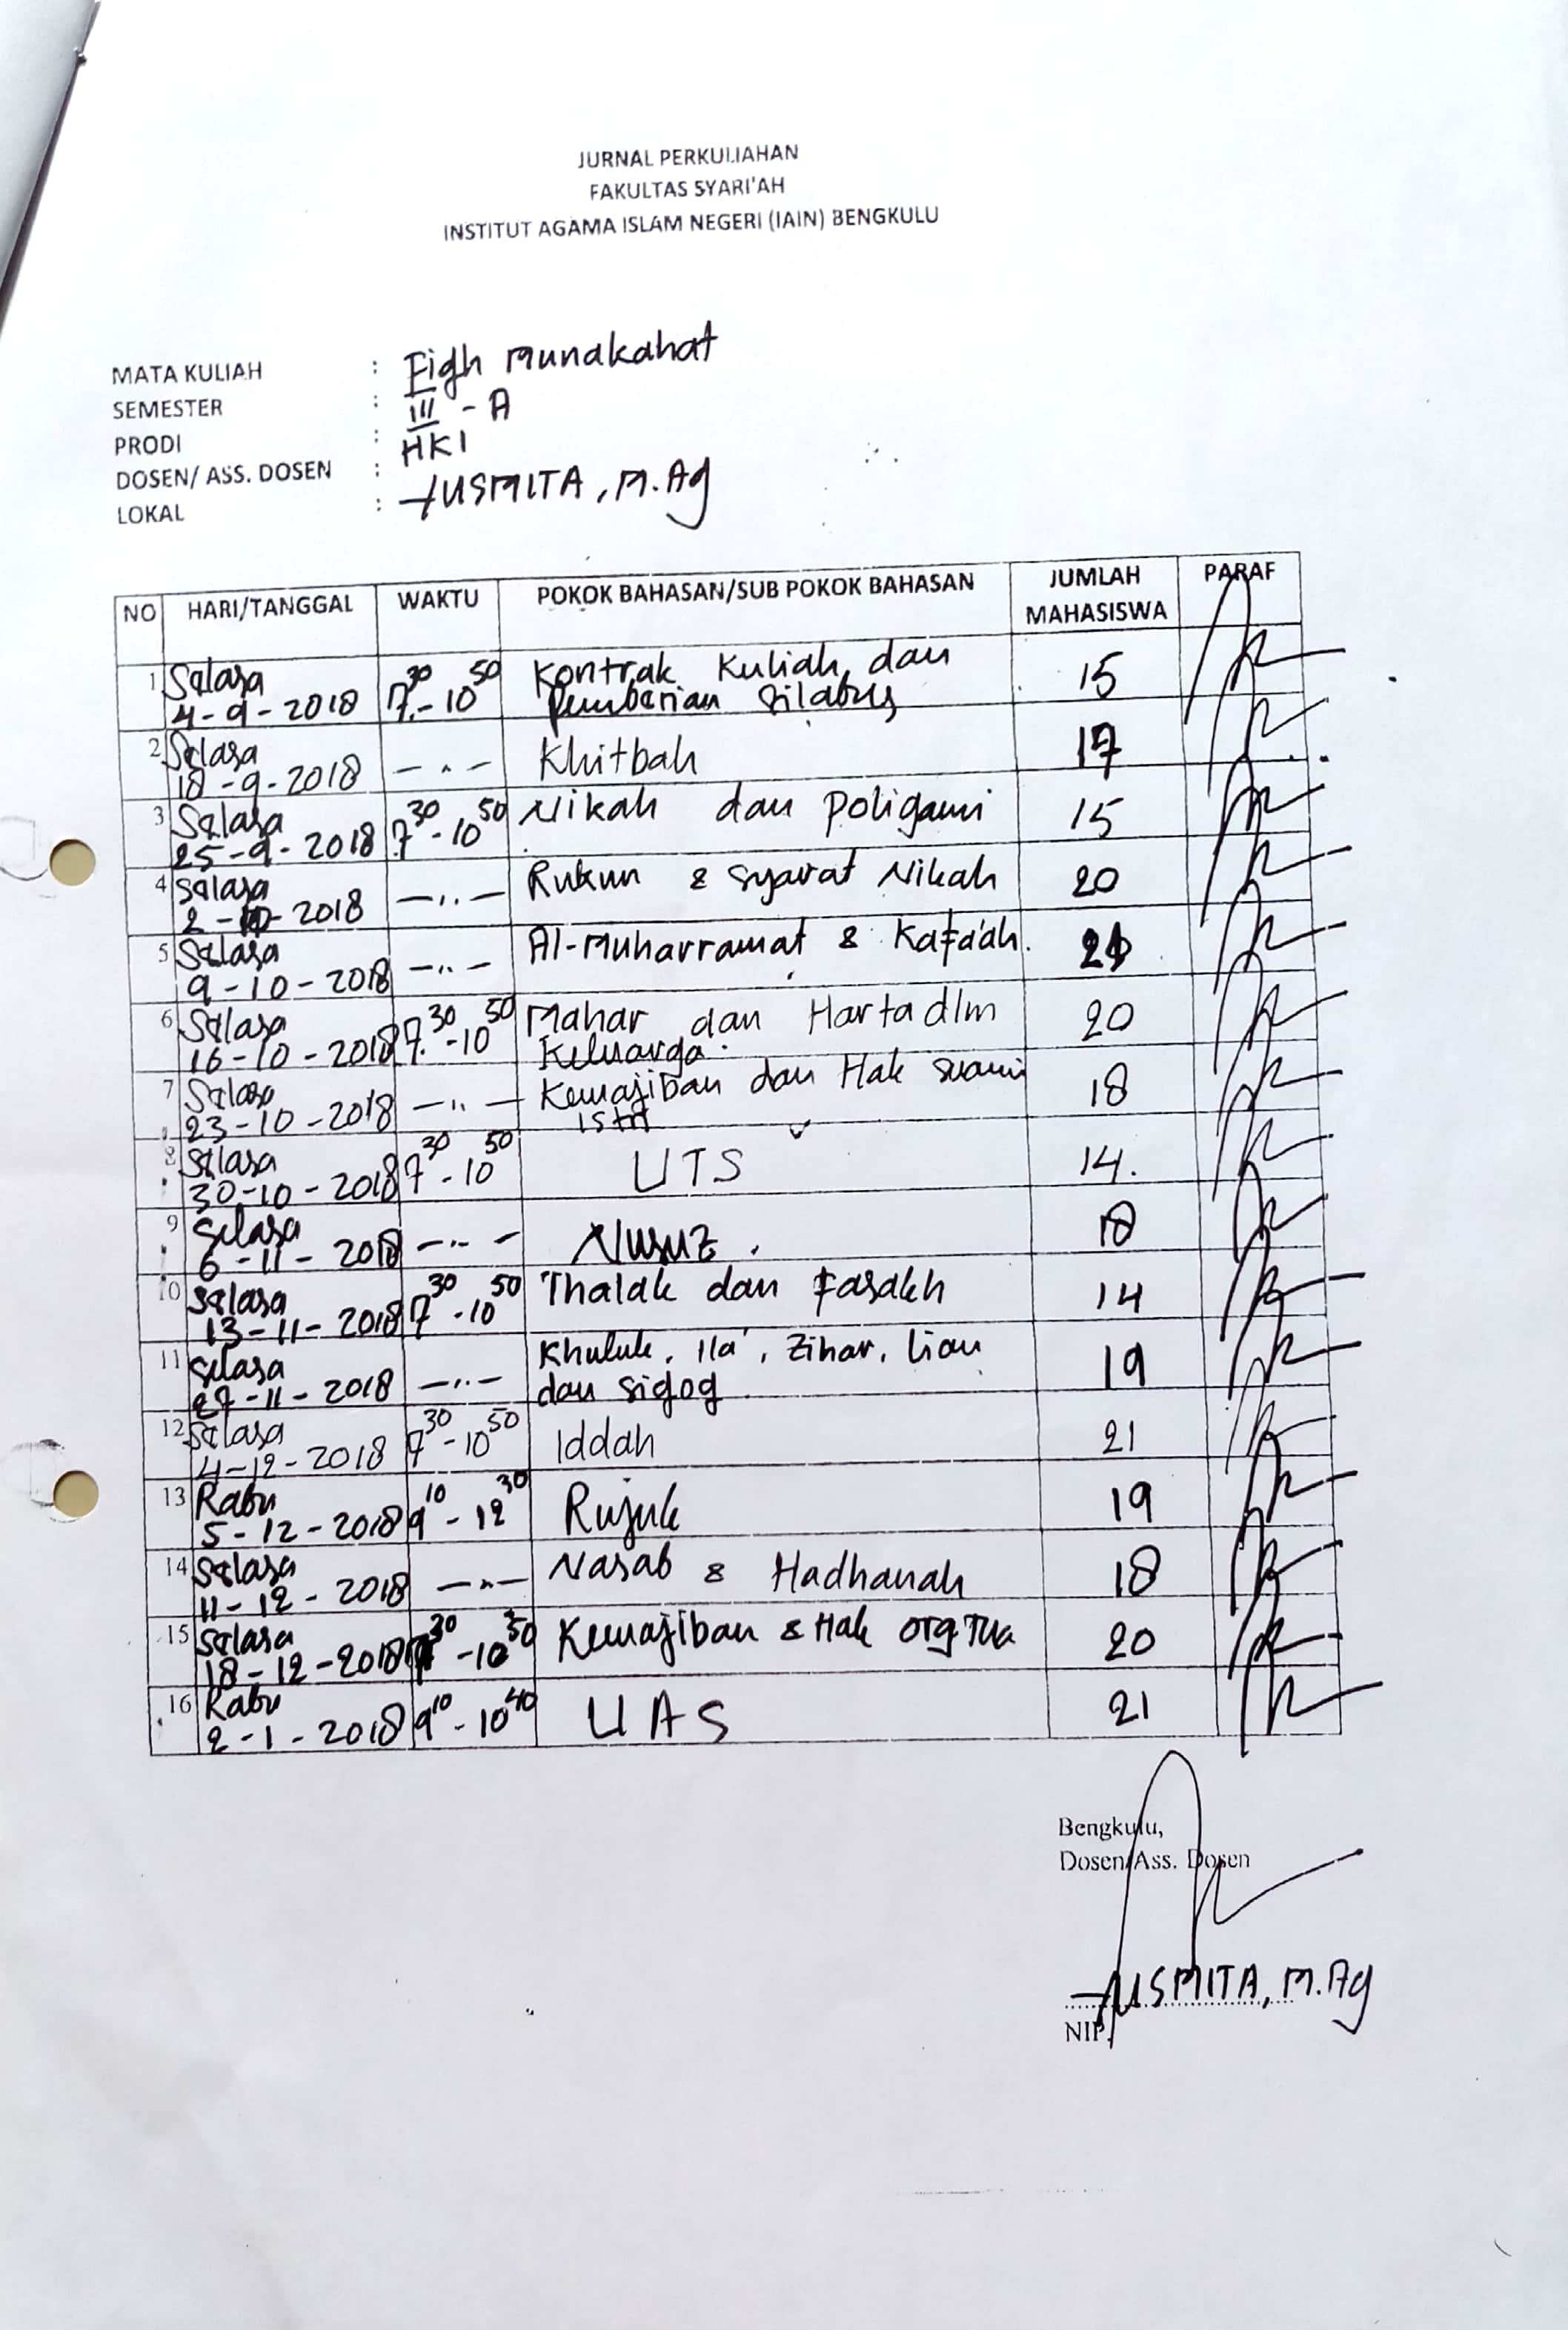 JURNAL PERKULIAHAN
FAKULTAS SYARI'AH
INSTITUT AGAMA ISLAM NEGERI (IAIN) BENGKULU
MATA KULIAH : Fiqh Munakahat
SEMESTER : III - A
PRODI : HKI
DOSEN/ ASS. DOSEN : YUSMITA, M.Ag
LOKAL :
NO HARI/TANGGAL WAKTU POKOK BAHASAN/SUB POKOK BAHASAN JUMLAH MAHASISWA PARAF
1 Selasa 4-9-2018 7.30 - 10 50 Kontrak Kuliah dan Pemberian Silabus 15
2 Selasa 18-9-2018 - " - Khitbah 17
3 Selasa 25-9-2018 7.30 - 10 50 Nikah dan Poligami 15
4 Selasa 2-10-2018 - " - Rukun & Syarat Nikah 20
5 Selasa 9-10-2018 - " - Al-Muharramat & Kafa'ah.
6 Selasa 16-10-2018 7.30 - 10 50 Mahar dan Harta dlm Keluarga. 20
7 Selasa 23-10-2018 - " - Kewajiban dan Hak Suami Istri 18
8 Selasa 30-10-2018 7 30 - 10 50 UTS 14.
9 Selasa 6-11-2018 - " - Nusuz. 18
10 Selasa 13-11-2018 7 30 - 10 50 Thalak dan Fasakh 14
11 Selasa 27-11-2018 - " - Khuluk, Ila', Zihar, Lian dan Siqoq 19
12 Selasa 4-12-2018 7 30 - 10 50 Iddah 21
13 Rabu 5-12-2018 9 10 - 12 30 Rujuk 19
14 Selasa 11-12-2018 - " - Nasab & Hadhanah 18
15 Selasa 18-12-2018 7 30 - 10 50 Kewajiban & Hak Org Tua 20
16 Rabu 2-1-2018 9 10 - 10 40 UAS 21
Bengkulu,
Dosen/Ass. Dosen
YUSMITA, M.Ag
NIP.